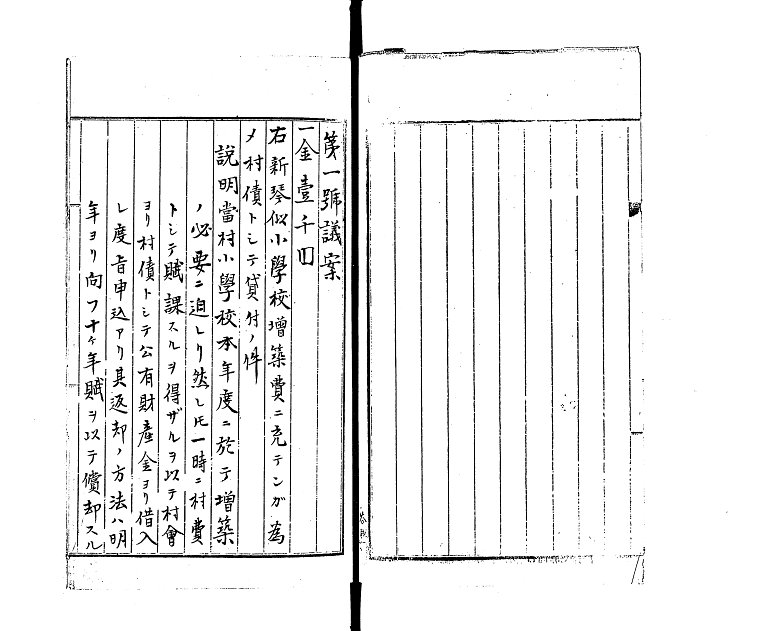 第一號議案
一金壹千円
右新琴似小學校増築費ニ充テンガ為
メ村債トシテ貸付ノ件
説明當村小學校本年度ニ於テ増築
ノ必要ニ迫レリ然レ𪜈一時ニ村費
トシテ賦課スルヲ得ザルヲ以テ村會
ヨリ村債トシテ公有財産金ヨリ借入
レ度旨申込アリ其返却ノ方法ハ明
年ヨリ向フ十ヶ年賦ヲ以テ償却スル